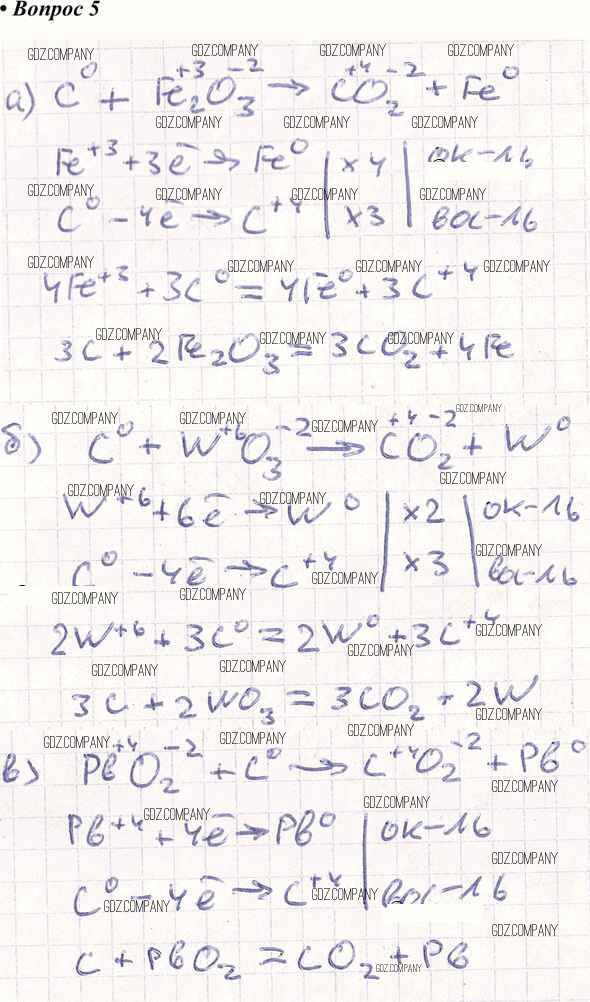 • Вопрос 5
GDZ.COMPANY GDZ.COMPANY GDZ.COMPANY GDZ.COMPANY
а) C⁰ + Fe₂⁺³O₃⁻² → C⁺⁴O₂⁻² + Fe⁰
GDZ.COMPANY GDZ.COMPANY GDZ.COMPANY
Fe⁺³ + 3ē → Fe⁰ | ×4 | ок-ль
GDZ.COMPANY GDZ.COMPANY GDZ.COMPANY GDZ.COMPANY
C⁰ - 4ē → C⁺⁴ | ×3 | вос-ль
GDZ.COMPANY GDZ.COMPANY GDZ.COMPANY GDZ.COMPANY
4Fe⁺³ + 3C⁰ = 4Fe⁰ + 3C⁺⁴
GDZ.COMPANY GDZ.COMPANY GDZ.COMPANY
3C + 2Fe₂O₃ = 3CO₂ + 4Fe
GDZ.COMPANY GDZ.COMPANY GDZ.COMPANY GDZ.COMPANY
б) C⁰ + W⁺⁶O₃⁻² → C⁺⁴O₂⁻² + W⁰
GDZ.COMPANY
GDZ.COMPANY GDZ.COMPANY
W⁺⁶ + 6ē → W⁰ | ×2 | ок-ль
GDZ.COMPANY
C⁰ - 4ē → C⁺⁴ | ×3 | вос-ль
GDZ.COMPANY
GDZ.COMPANY GDZ.COMPANY
2W⁺⁶ + 3C⁰ = 2W⁰ + 3C⁺⁴
GDZ.COMPANY
GDZ.COMPANY
GDZ.COMPANY GDZ.COMPANY
3C + 2WO₃ = 3CO₂ + 2W
GDZ.COMPANY
GDZ.COMPANY GDZ.COMPANY GDZ.COMPANY
в) Pb⁺⁴O₂⁻² + C⁰ → C⁺⁴O₂⁻² + Pb⁰
GDZ.COMPANY
GDZ.COMPANY GDZ.COMPANY
Pb⁺⁴ + 4ē → Pb⁰ | ок-ль
GDZ.COMPANY
C⁰ - 4ē → C⁺⁴ | вос-ль
GDZ.COMPANY GDZ.COMPANY
GDZ.COMPANY
C + PbO₂ = CO₂ + Pb
GDZ.COMPANY